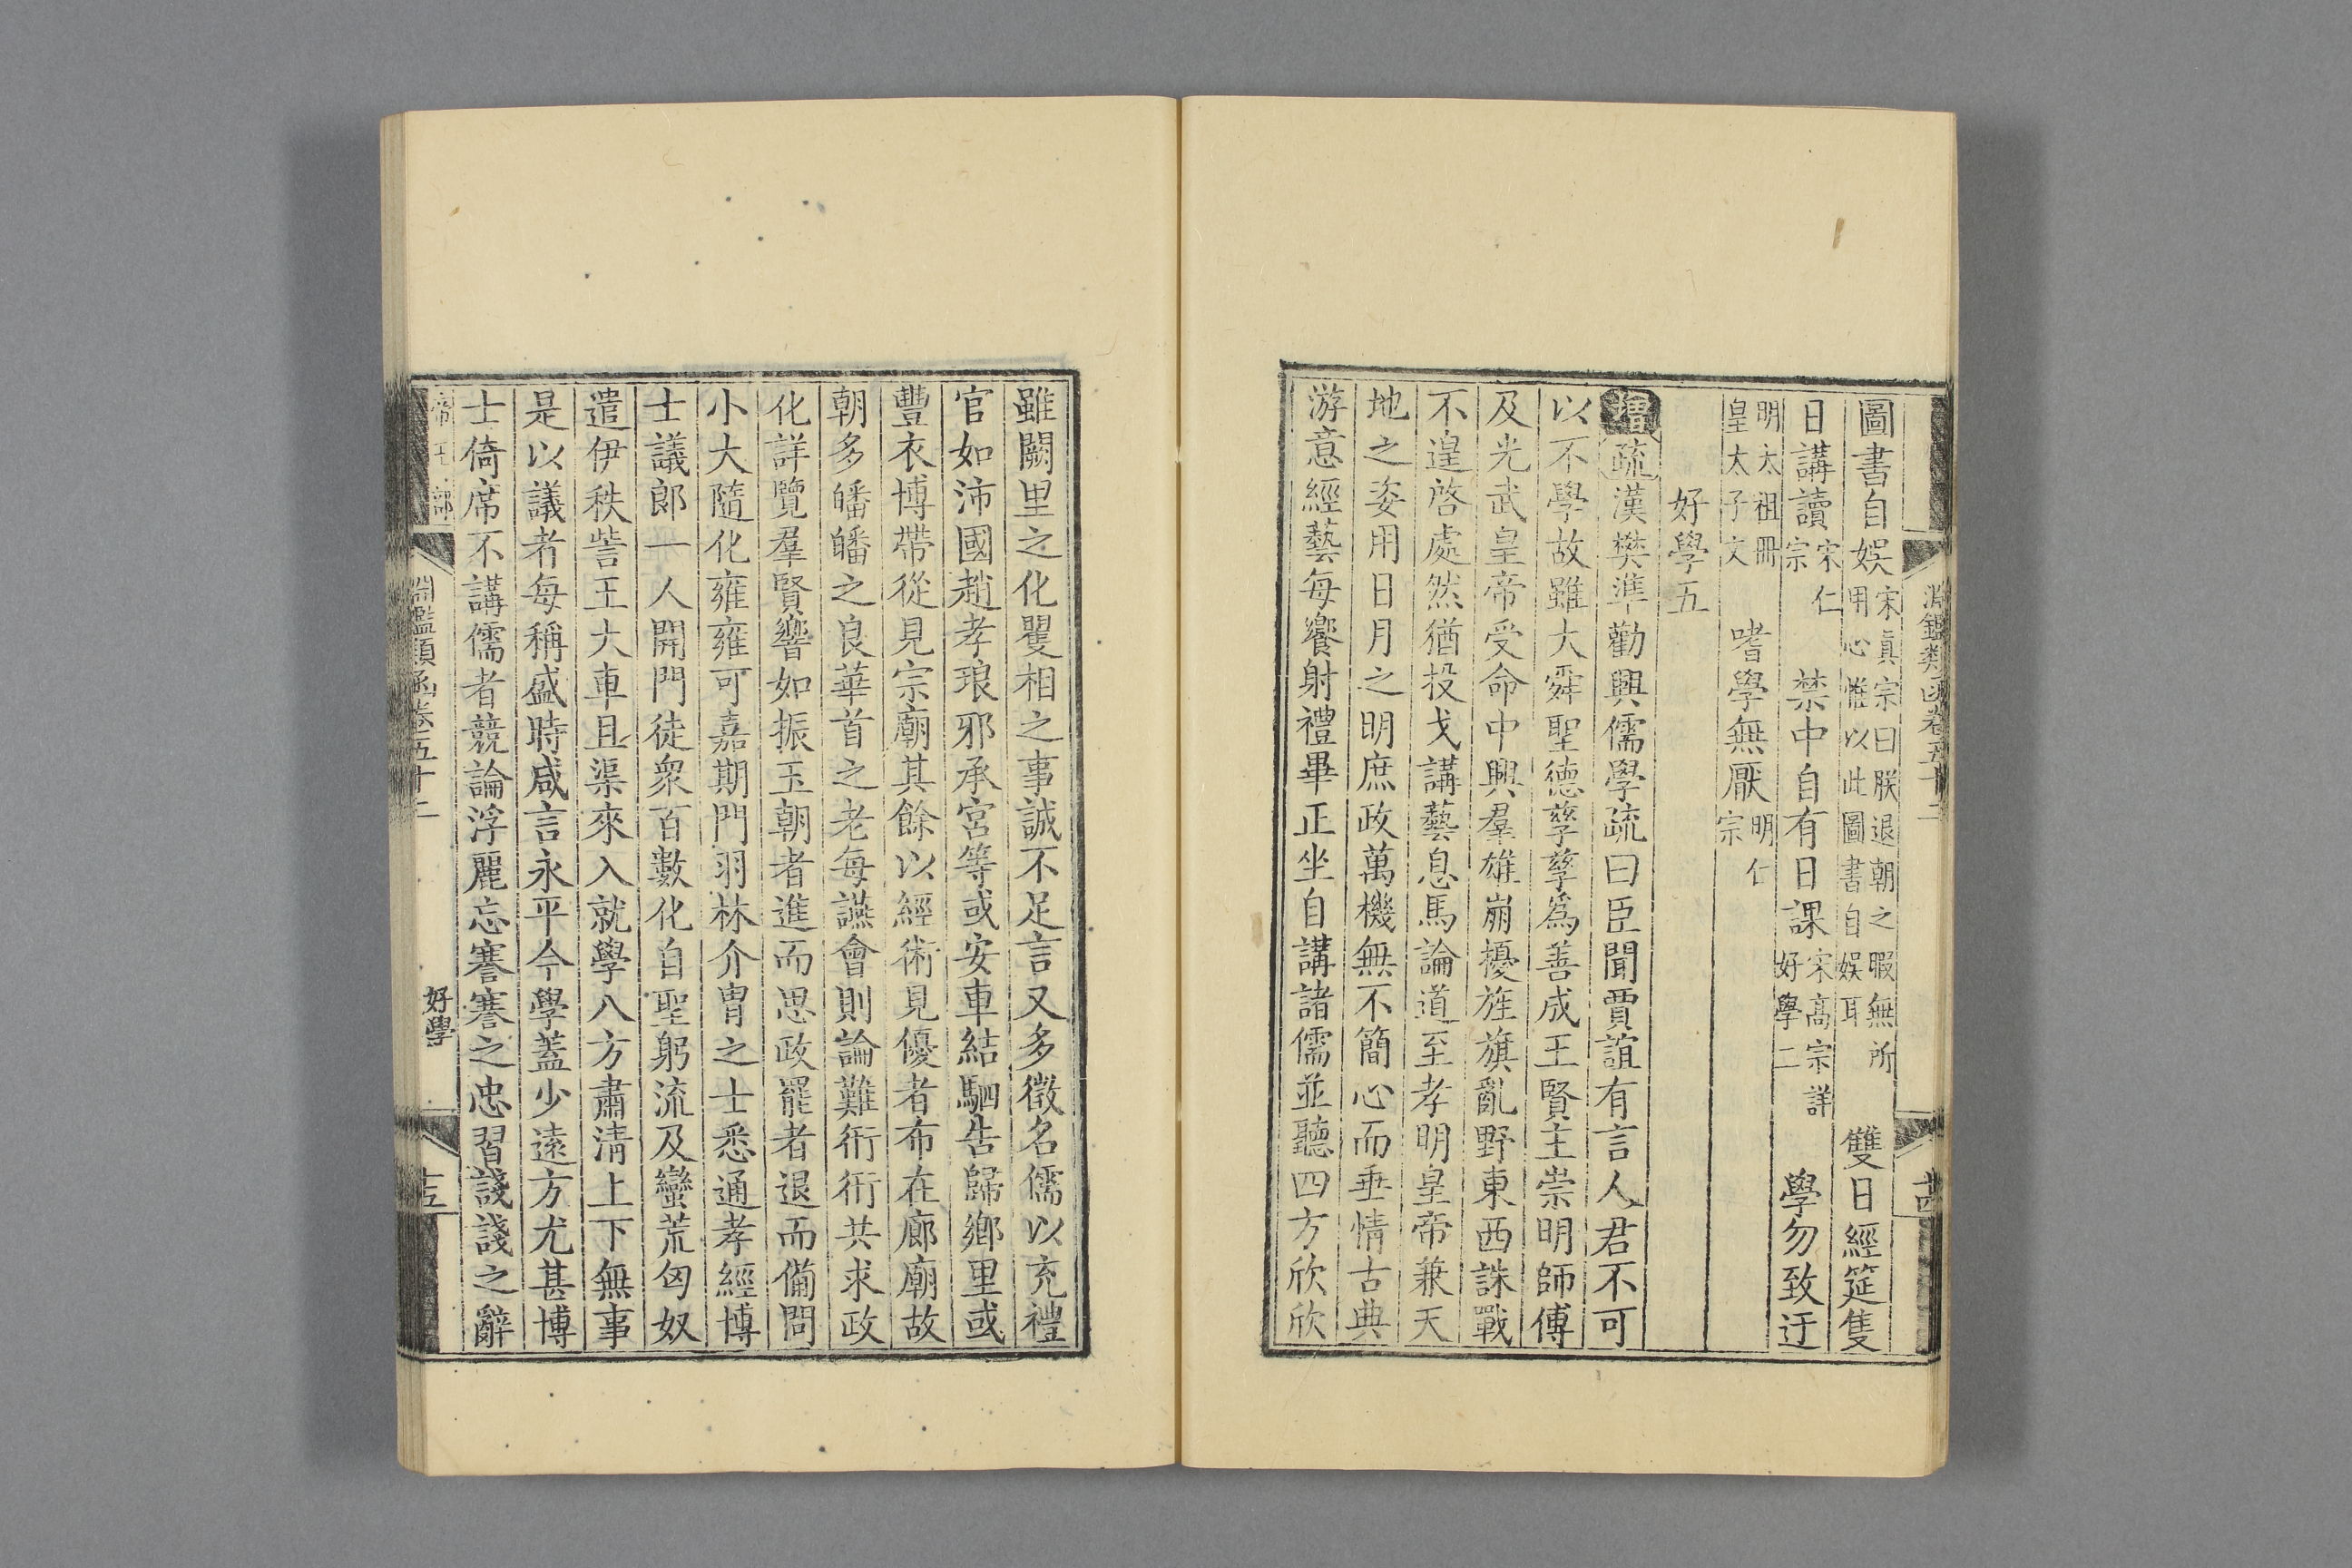 淵鑑類函卷五十二
圖書自娛宋真宗曰朕退朝之暇無所用心惟以此圖書自娛耳 雙日經筵隻
日講讀宋仁宗 禁中自有日課宋高宗詳好學二 學勿致迂
明太祖冊皇太子文 嗜學無厭明仁宗
好學五
增疏漢樊準勸興儒學疏曰臣聞賈誼有言人君不可
以不學故雖大舜聖德孳孳爲善成王賢主崇明師傅
及光武皇帝受命中興羣雄崩擾旌旗亂野東西誅戰
不遑啓處然猶投戈講藝息馬論道至孝明皇帝兼天
地之姿用日月之明庶政萬機無不簡心而垂情古典
游意經藝每饗射禮畢正坐自講諸儒並聽四方欣欣
雖闕里之化矍相之事誠不足言又多徵名儒以充禮
官如沛國趙孝琅邪承宮等或安車結駟告歸鄉里或
豐衣博帶從見宗廟其餘以經術見優者布在廊廟故
朝多皤皤之良華首之老每讌會則論難衎衎共求政
化詳覽羣賢響如振玉朝者進而思政罷者退而備問
小大隨化雍雍可嘉期門羽林介冑之士悉通孝經博
士議郎一人開門徒衆百數化自聖躬流及蠻荒匈奴
遣伊秩訾王大車且渠來入就學八方肅淸上下無事
是以議者每稱盛時咸言永平今學蓋少遠方尤甚博
士倚席不講儒者競論浮麗忘謇謇之忠習諓諓之辭
帝王部
淵鑑類函卷五十二
好學